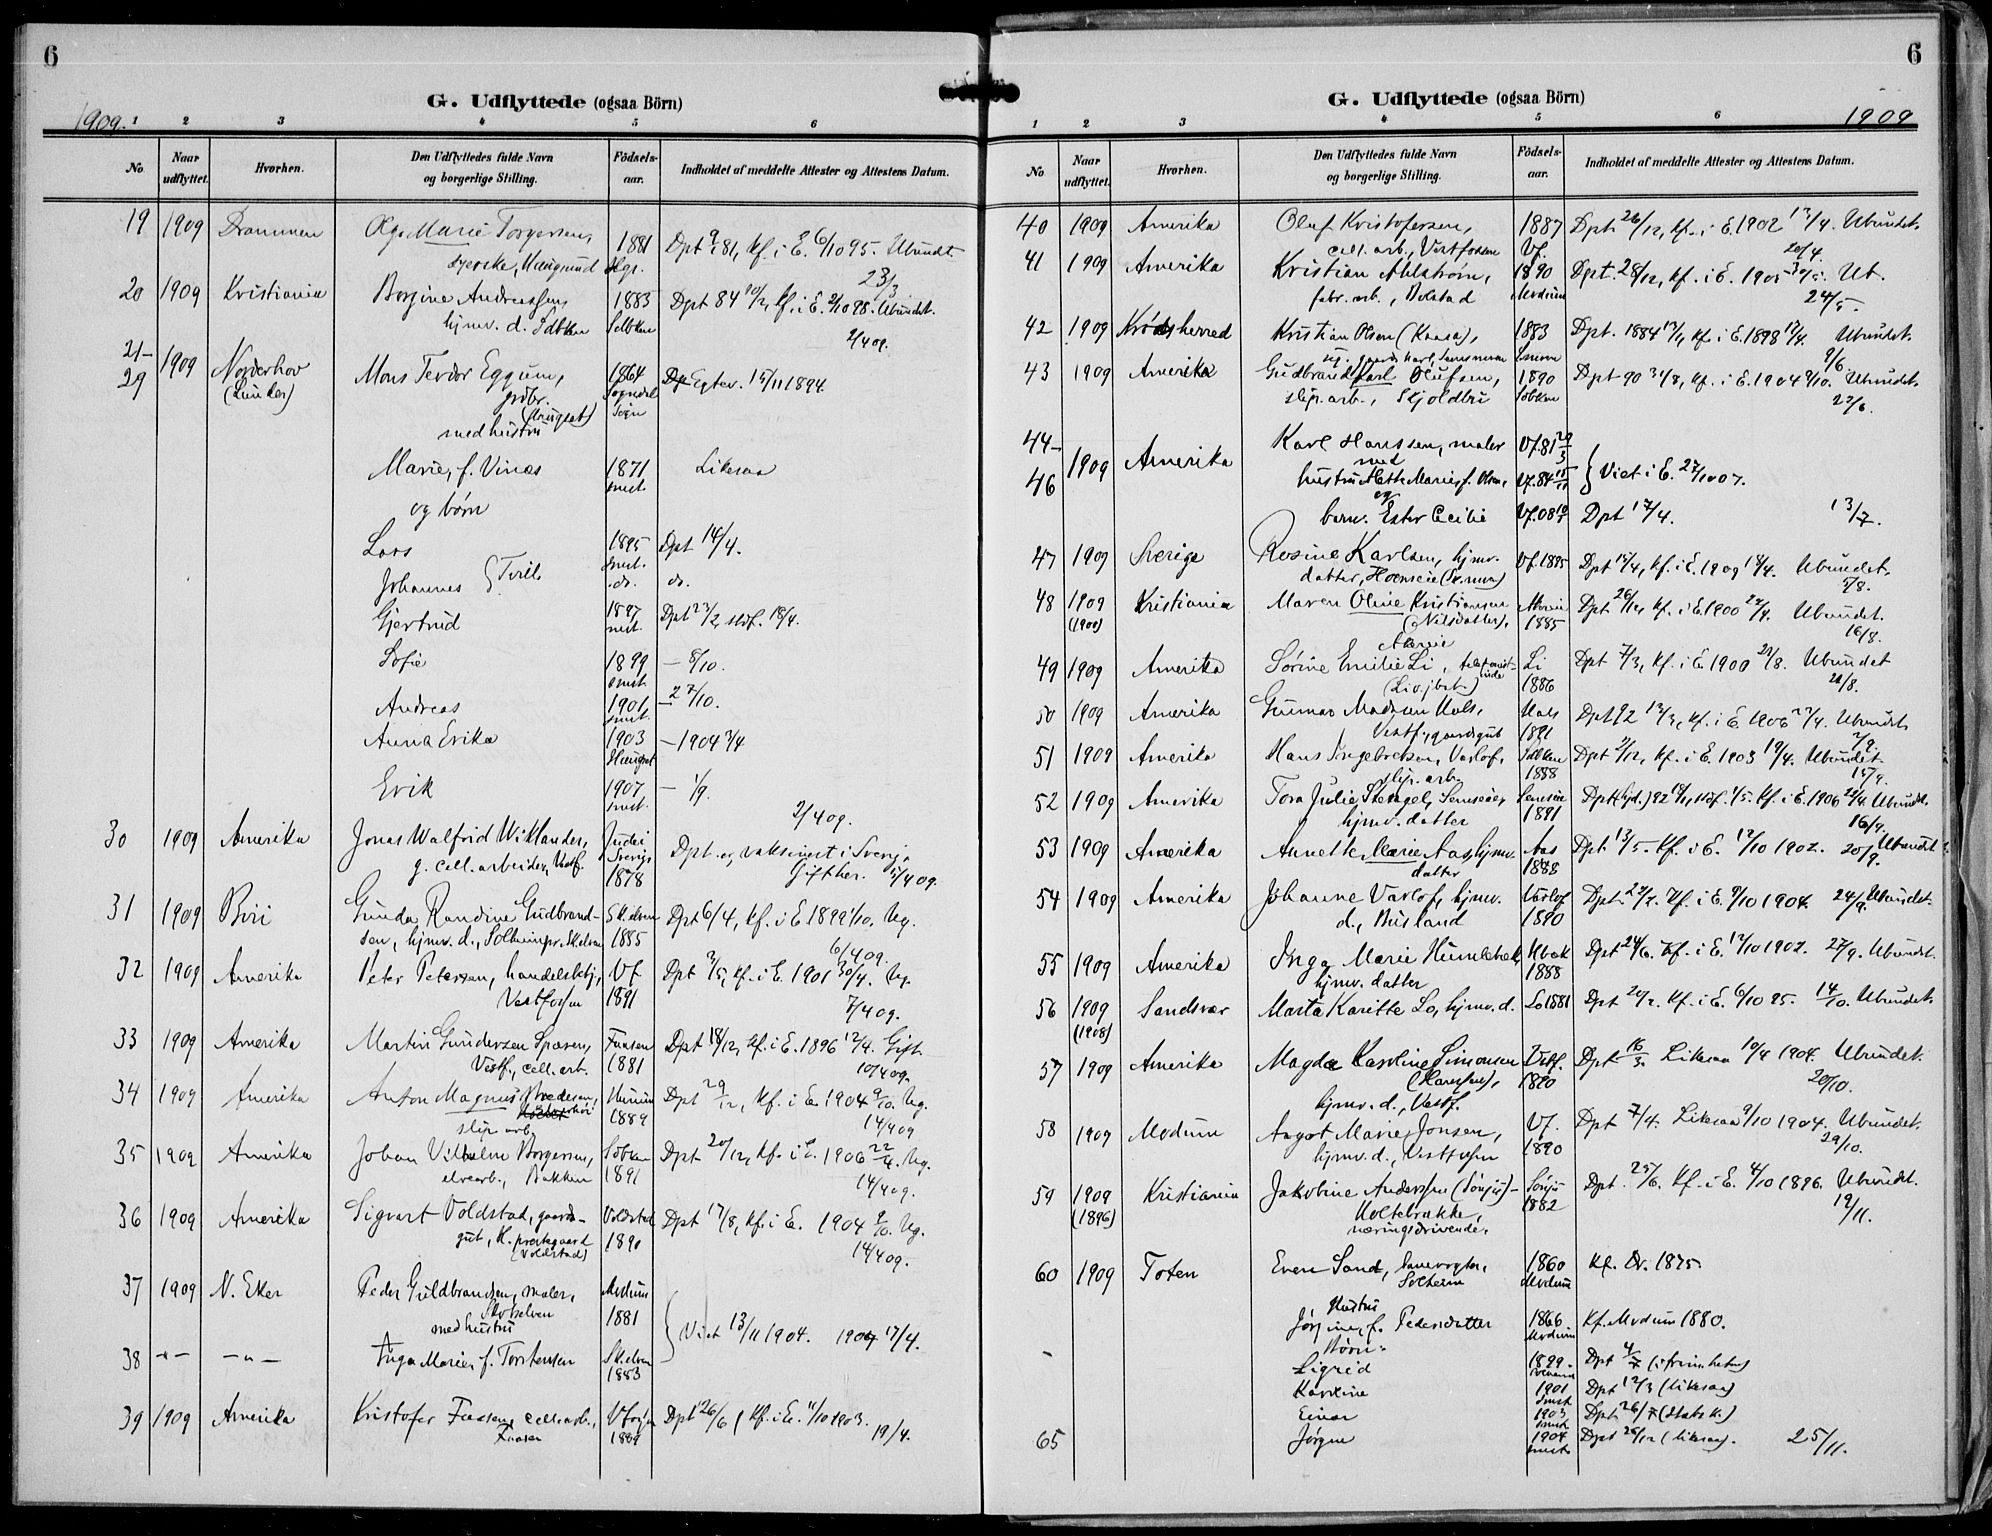 6
G. Udflyttede (ogsaa Börn)
1909.
1 2 3 4 5 6
No Naar udflyttet. Hvorhen. Den Udflyttedes fulde Navn og borgerlige Stilling. Födsels-aar. Indholdet af meddelte Attester og Attestens Datum.
19 1909 Drammen Marie Torgersen, 1881 Dpt 81, kf. i E. 6/10 95. Ubundet
23/3
20 1909 Kristiania Borgine Andreassen, 1883 Dpt 84 kf. i E. 2/10 98. Ubundet.
hjmv. d.
2/4 09.
21- 1909 Norderhov Mons Tevdor Eggum, 1864 Egtev. 15/11 1894.
29 gdbr. Sogndal Sogn
med hustru
Marie, f. Vines 1871 Likesaa
og børn
Lars 1895 Dpt 14/4.
Johannes } Tvill. do. do.
Gjertrud 1897 Dpt 23/2, 18/4.
Sofie 1899 — 8/10.
Andreas 1901 — 27/10.
Anna Erika 1903 — 1904 3/4
Erik 1907 — 1/9.
2/4 09.
30 1909 Amerika Jonas Walfrid Wiklander, Sverige
g. cell. arbeider, Vestf. 1878 Dpt. og vaksinert i Sverige
Gift her. 5/4 09.
31 1909 Biri Gunda Randine Gudbrand- Dpt 6/4, kf. i E 1899 1/10. Ug.
sen, hjmv. d., 1885
6/4 09.
32 1909 Amerika Peter Petersen, handelsbtj, Vf Dpt 3/5, kf. i E. 1901 30/4. Ug.
Vestfossen 1891
7/4 09.
33 1909 Amerika Martin Gundersen Fuasen Dpt 18/12, kf. i E. 1896 12/4. Gift.
Vestf., cell. arb. 1881
10/4 09.
34 1909 Amerika Anton Magnus Dpt 29/12, kf. i E. 1904 9/10. Ug.
slip. arb. 1889
14/4 09
35 1909 Amerika Johan Vilhelm Borgersen, Dpt 20/12, kf. i E. 1906 22/4. Ug.
Bakken 1891
14/4 09.
36 1909 Amerika Sigvart Voldstad, gaards- Voldstad Dpt 17/8, kf. i E. 1904 9/10. Ug.
gut, H. prestegaard 1890
(Voldstad) 14/4 09.
37 1909 N. Eker Peder Guldbrandsen, maler, Modum
Skotselven 1881
med hustru } Viet 13/11 1904. 17/4.
38 -"- -"- Inga Marie, f. Torstensen
1883
39 1909 Amerika Kristofer Fuasen, cell. arb., Dpt 26/6, kf. i E. 4/10 1903.
Fuasen 1889 19/4.
6
G. Udflyttede (ogsaa Börn)
1909
1 2 3 4 5 6
No Naar udflyttet. Hvorhen. Den Udflyttedes fulde Navn og borgerlige Stilling. Födsels-aar. Indholdet af meddelte Attester og Attestens Datum.
40 1909 Amerika Oluf Kristofersen, 1887 Dpt 26/12, kf. i E. 1902 13/4. Ubundet.
cell. arb., Vestfossen Vf. 20/4.
41 1909 Amerika Kristian Ahlstrøm, 1890 Dpt. 28/12, kf. i E. 1905 Ub.
fabr. arb., Bolstad Modum 24/5.
42 1909 Krødsherred Kristian Olsen (Kaasa), 1883 Dpt. 1884 kf. i E. 1898 17/4. Ubundet.
9/6.
43 1909 Amerika Gudbrand Karl Olufsen, 1890 Dpt. 90 31/8, kf. i E. 1904 9/10. Ubundet.
slip. arb., Skjoldbu 22/6.
44- 1909 Amerika Karl Hanssen, maler Vf. 81
med
46 hustru Marie, f. Olsen, Vf. 84 } Viet i E. 27/10 07.
og
barn. Ester Cecilie Vf. 08 Dpt 17/4. 13/7.
47 1909 Sverige Rosine Karlsen, hjmv. Vf. 1895 Dpt 15/4, kf. i E. 1909 18/4. Ubundet.
datter, 5/8.
48 1909 Kristiania Maren Oline Kristiansen Dpt. 26/12, kf. i E. 1900 22/4. Ubundet.
(1900) (Nilsdatter), 1885 16/8.
49 1909 Amerika Sørine Emilie Li, Li Dpt 7/3, kf. i E. 1900 Ubundet
1886 /8.
50 1909 Amerika Gunnar Madsen Hals, Hals Dpt 92 13/3, kf. i E 1906 Ubundet.
Vestf., gaardsgut 1891 2/9.
51 1909 Amerika Hans Ingebretsen, Varlof, Dpt 2/12, kf. i E. 1903 19/4. Ubundet.
slip. arb. 1888 15/9.
52 1909 Amerika Tora Julie Stengel, Semseie, Semseie Dpt (hjd.) 92 kf. i E. 1906 22/4. Ubundet.
hjmv. datter 1891 16/9.
53 1909 Amerika Annette Marie Aas, hjmv. Aas Dpt 13/5. Kf. i E. 12/10 1902. 20/9. Ubundet.
datter 1888
54 1909 Amerika Johanne Varlof, hjmv. Varlof Dpt. 22/2. Kf. i E. 9/10 1904. 24/9. Ubundet.
d., Busland 1890
55 1909 Amerika Inga Marie Humlebæk Hbæk Dpt 24/6. Kf. i E. 12/10 1902. 27/9. Ubundet.
hjmv. datter 1888
56 1909 Sandsvær Marta Karitte Lo, hjmv. d. Lo 1881 Dpt 20/2. Kf. i E. 6/10 95. 14/10. Ubundet.
(1908)
57 1909 Amerika Magda Karoline Simonsen Vestf. Dpt 16/3. Likesaa 10/4 1904. Ubundet.
(Hansen), 1890 20/10.
hjmv. d., Vestf.
58 1909 Modum Aagot Marie Jonsen, Vf. Dpt 7/4. Likesaa 9/10 1904. Ubundet.
hjmv. d., Vestfossen 1890 29/10.
59 1909 Kristiania Jakobine Anderssen (Sønju) - Sønju Dpt. 25/6. Kf. i E. 4/10 1896. Ubundet.
(1896) Holtebrække, 1882 19/11.
næringsdrivende.
60 1909 Toten Even Sand, banevogter, 1860 Kf. Dr. 1875.
Solheim Modum
Hustru
Jørgine, f. Pedersdatter 1866 Kf. Modum 1880.
Modum
Børn:
Sigrid 1899. Dpt
Karoline 1901 Dpt 12/3 (likesaa)
Einar 1903 Dpt. 26/7 (Stats k.)
65 Jørgine 1904 Dpt 26/12 (likesaa). 25/11.